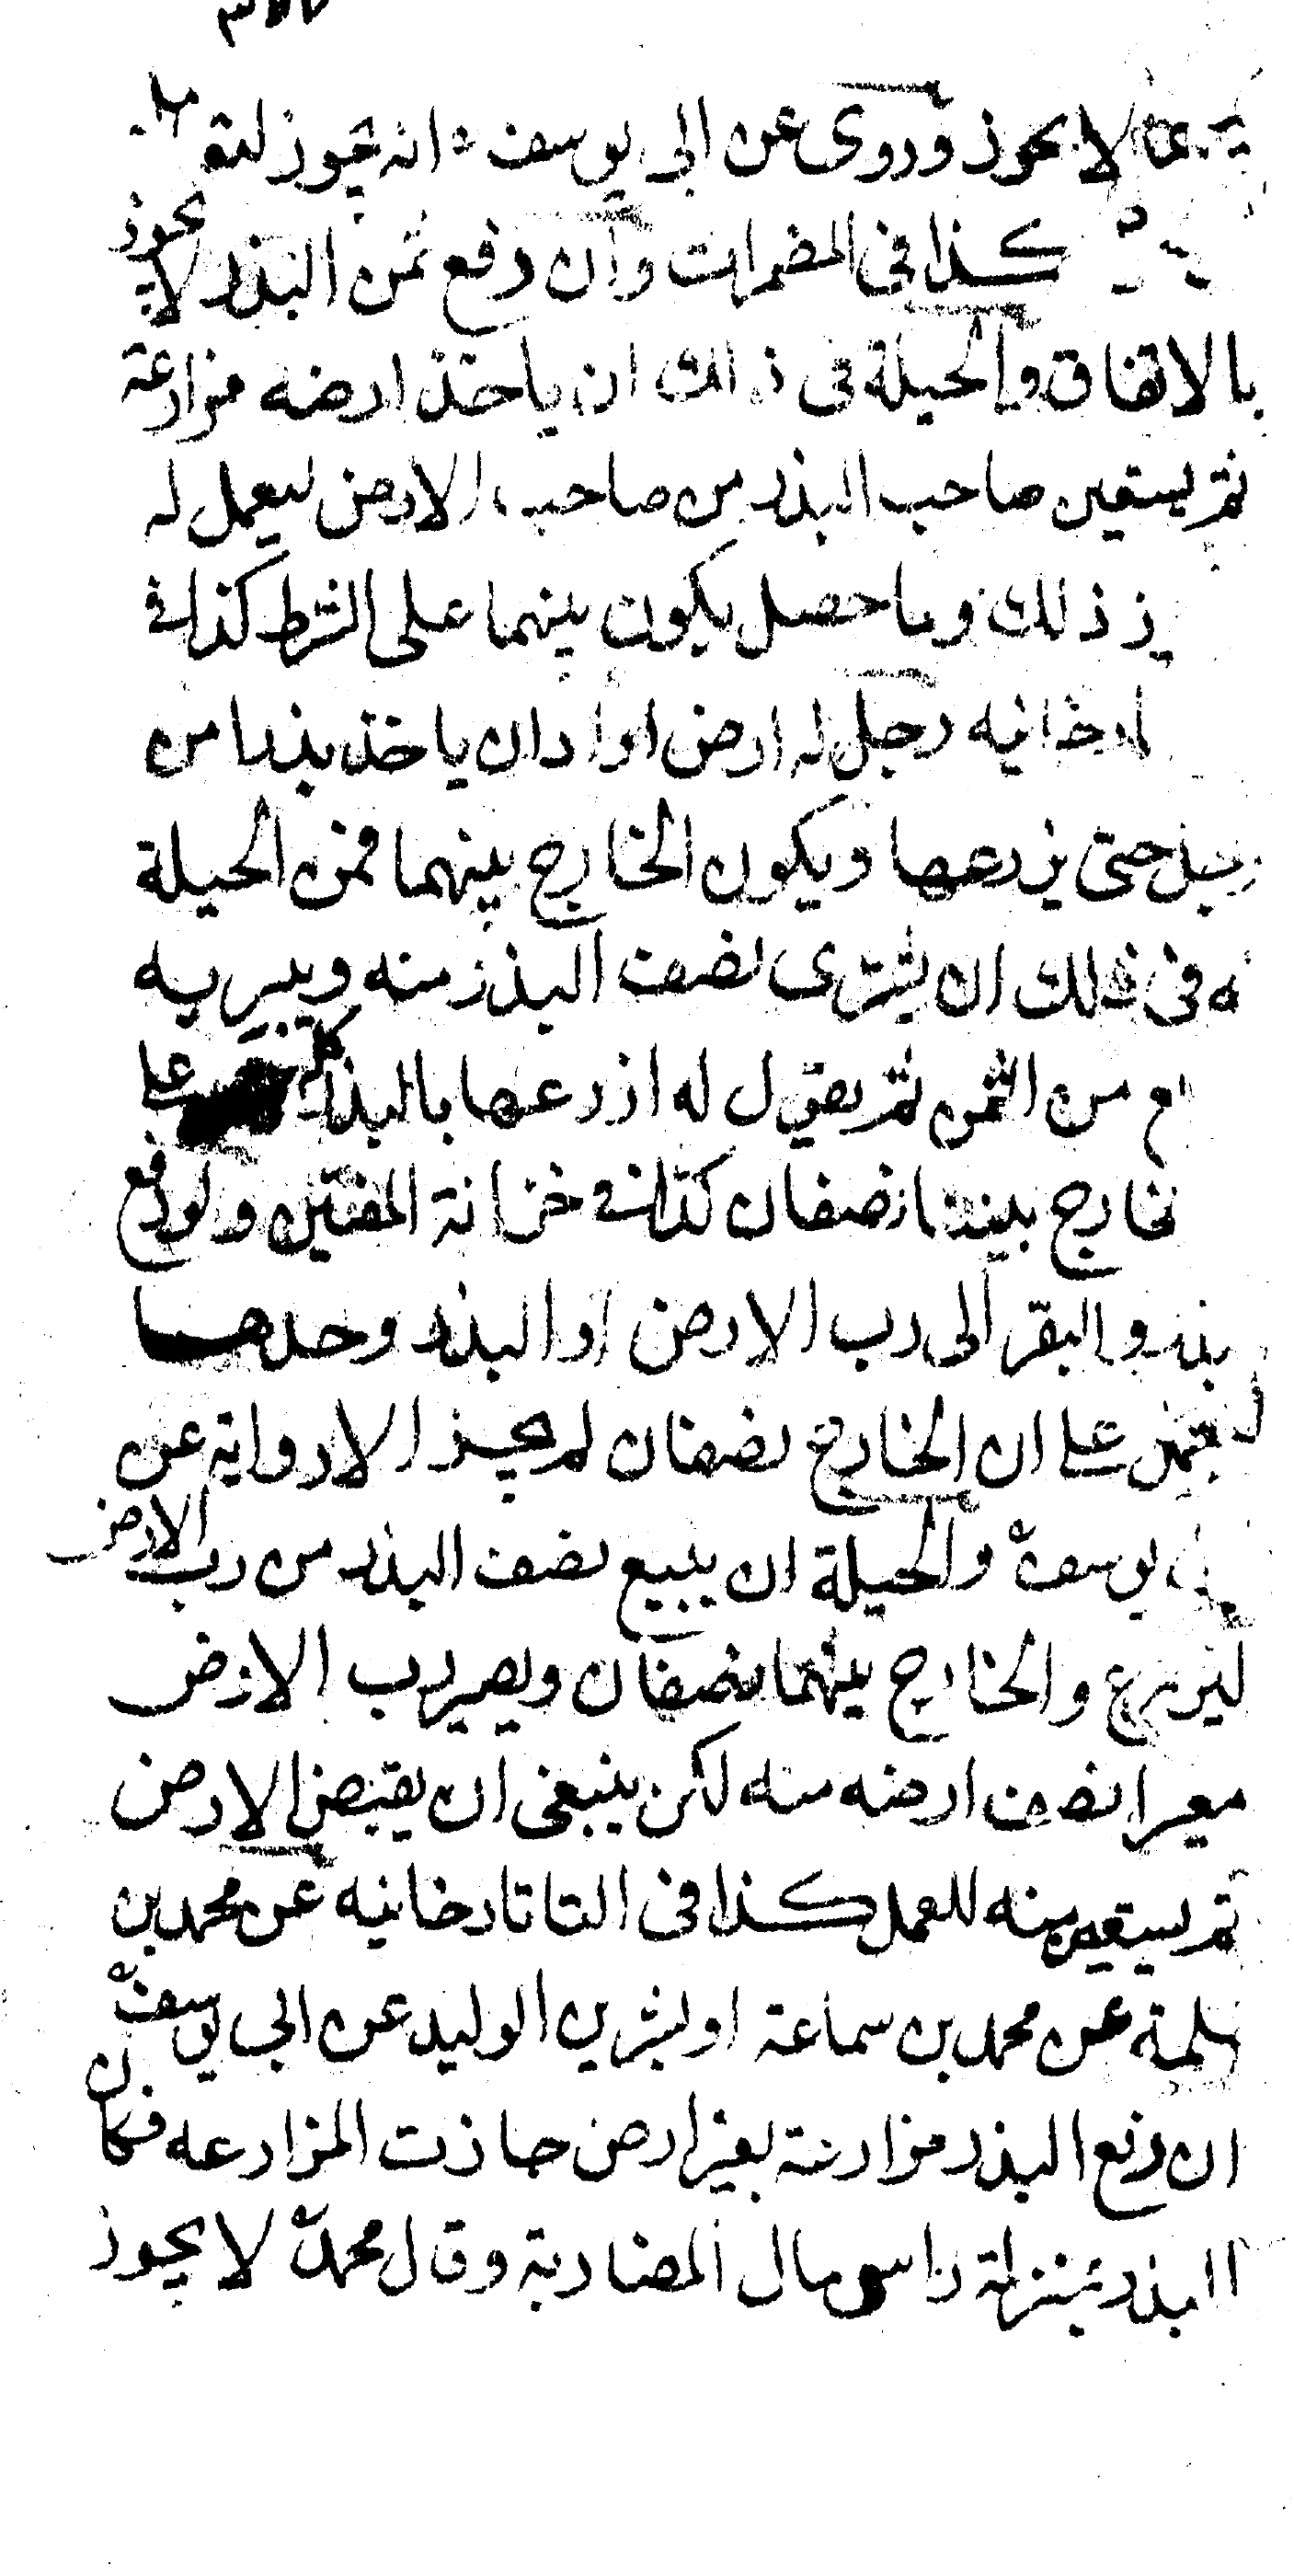 لا يجوز وروى عن ابى يوسف انه يجوز
كذا فى المضمرات وان دفع ثمن البذر لا يجوز
بالاتفاق والحيلة فى ذالك ان ياخذ ارضه مزارعة
ثم يستعين صاحب البذر من صاحب الارض ليعمل له
ذلك وما حصل يكون بينهما على الشرط كذا فى
رجل له ارض اراد ان ياخذ بذرا من
رجل حتى يزرعها ويكون الخارج بينهما فمن الحيلة
له فى ذلك ان يشترى نصف البذر منه ويبريه
من الثمن ثم يقول له ازرعها بالبذر كله على
الخارج بيننا نصفان كذا فى خزانة المفتين ولو دفع
بذر والبقر الى رب الارض او البذر وحدها
على ان الخارج نصفان لم يجز الا رواية عن
يوسف والحيلة ان يبيع نصف البذر من رب الارض
ليزرع والخارج بينهما نصفان ويصير رب الارض
معيرا نصف ارضه منه لكن ينبغى ان يقبض الارض
ثم يستعين منه للعمل كذا فى التاتارخانيه عن محمد بن
سلمة عن محمد بن سماعة او بشر بن الوليد عن ابى يوسف
ان دفع البذر مزارعة بغير ارض جازت المزارعه فكان
البذر بمنزلة راس مال المضاربة وقال محمد لا يجوز